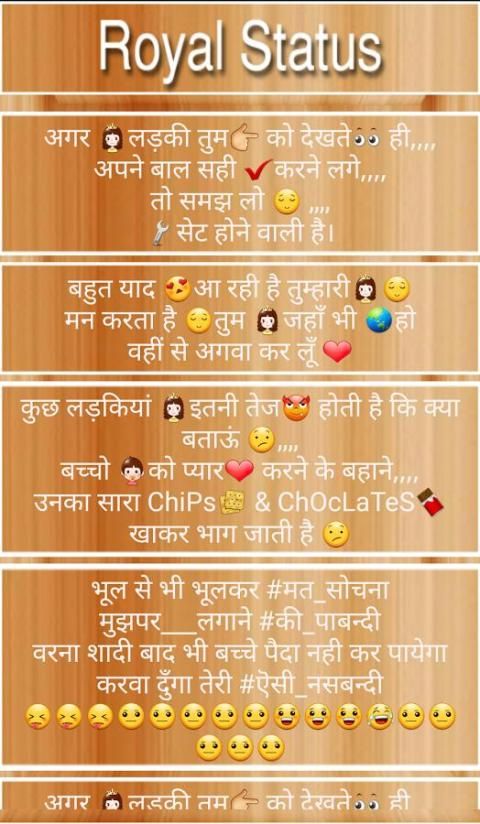 Royal Status
अगर 👸लड़की तुम👉 को देखते👀 ही,,,,
अपने बाल सही ✔करने लगे,,,,
तो समझ लो 😌 ,,,,
🔧 सेट होने वाली है।
बहुत याद 😍आ रही है तुम्हारी👸😌
मन करता है 😌तुम 👸जहाँ भी 🌏हो
वहीं से अगवा कर लूँ ❤
कुछ लड़कियां 👸इतनी तेज😈 होती है कि क्या
बताऊं 😕,,,,
बच्चो 👦को प्यार❤ करने के बहाने,,,,
उनका सारा ChiPs & ChOcLaTeS🍫
खाकर भाग जाती है 😕
भूल से भी भूलकर #मत_सोचना
मुझपर___लगाने #की_पाबन्दी
वरना शादी बाद भी बच्चे पैदा नही कर पायेगा
करवा दुँगा तेरी #ऎसी_नसबन्दी
😝😝😝😐😐😐😐😐😀😀😀😂😐😐
😐😐😐
अगर 👸लड़की तुम👉 को देखते👀 ही